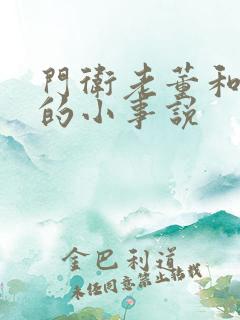 門衛老董和
的小事說
金巴利道
未任同意禁止转载